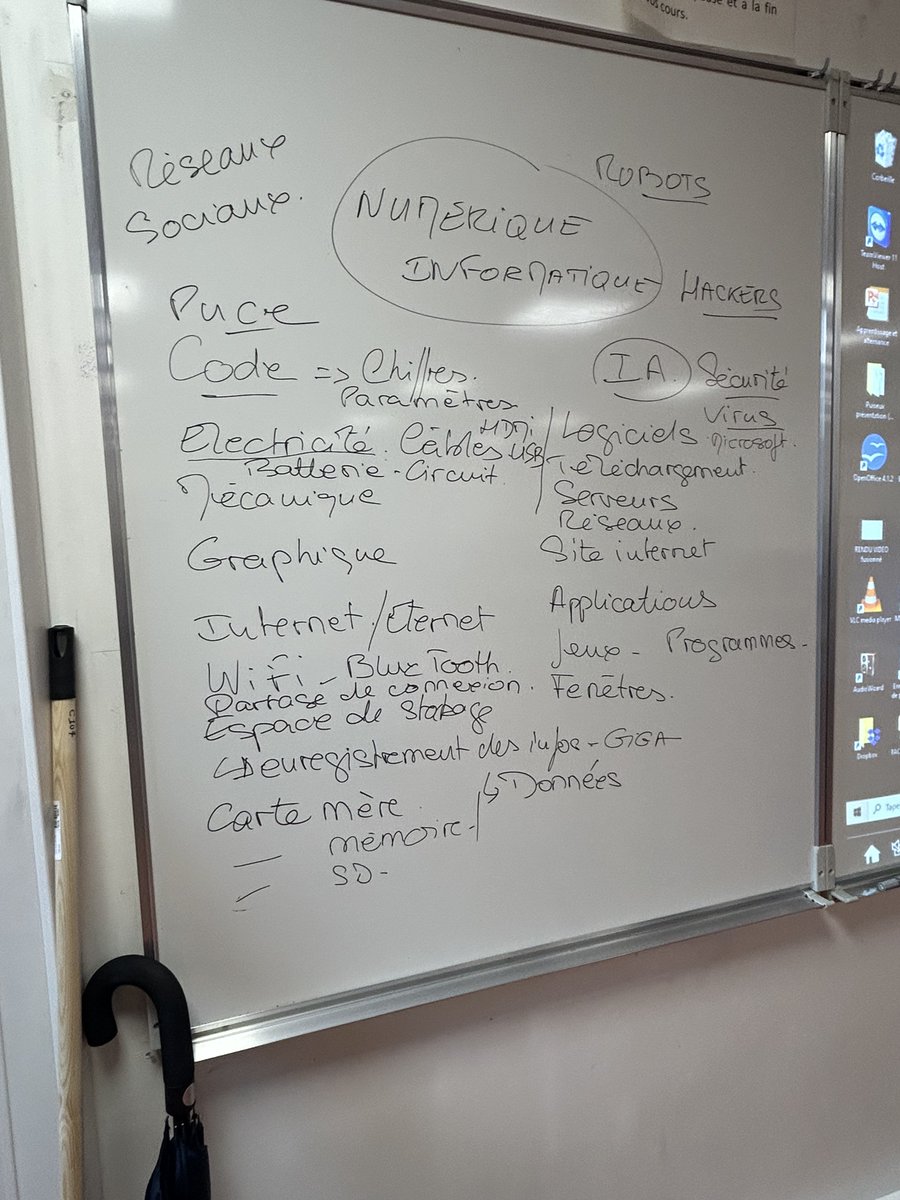 et a la fin
cours.
Réseaux
Sociaux.
NUMERIQUE
INFORMATIQUE
ROBOTS
HACKERS
Puce
Code => Chiffres.
Paramètres
IA
Sécurité
Virus
Microsoft.
Electricité. Câbles HDMi USB
Batterie - Circuit.
Mécanique
Graphique
Logiciels
Téléchargement.
Serveurs
Réseaux.
Site internet
Internet / Eternet
WiFi - Blue Tooth.
Partage de connexion.
Espace de Stokage
↳ enregistrement des infos - GIGA
↳ Données
Applications
Jeux - Programmes -
Fenêtres.
Carte mère.
— mémoire -
— SD -
Corbeille
TeamViewer 11
Host
Apprentissage et
alternance
présentation (...
OpenOffice 4.1.2
RENDU VIDEO
fusionné
VLC media player
AudioWizard
Dropbox